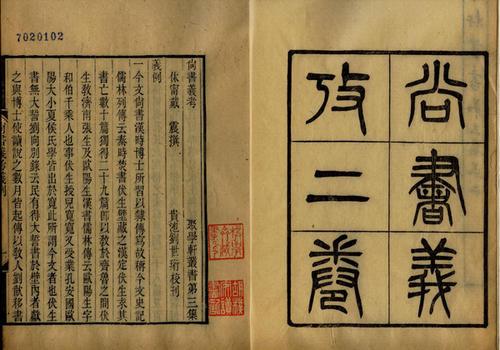 尚書義
攷二卷
7020102
尚書義考 聚學軒叢書第三集
休甯戴 震撰 貴池劉世珩校刊
義例
一今文尚書漢時博士所習以隸傳寫故稱今文史記
儒林列傳云秦時焚書伏生壁藏之漢定伏生求其
書亡數十篇獨得二十九篇卽以教於齊魯之間伏
生教濟南張生及歐陽生漢書儒林傳云歐陽生字
和伯千乘人也事伏生授兒寬寬又受業孔安國歐
陽大小夏侯氏學皆出於寬此所謂今文者也伏生
書無大誓劉向別錄云民有得大誓書於壁內者獻
之與博士使讀說之數月皆起傳以教人劉歆移書